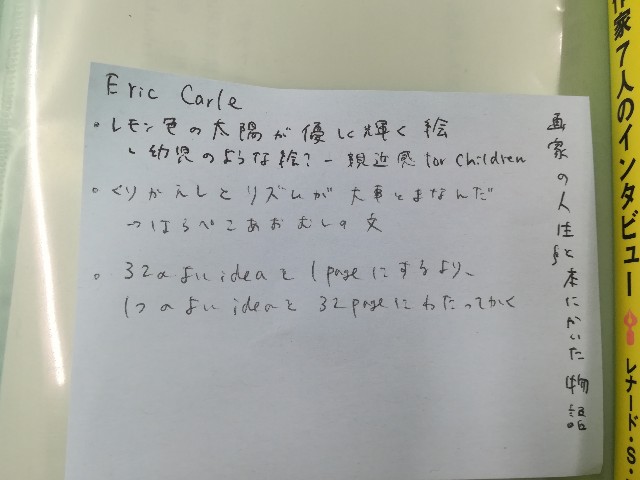 Eric Carle
・レモン色の太陽が優しく輝く絵
↳幼児のような絵？－親近感 for Children
・くりかえしとリズムが大事とまなんだ
→はらぺこあおむしの文
・32のよいideaを1pageにするより、
1つのよいideaを32pageにわたってかく
画家の人生と本にかいた物語
作家7人のインタビュー
レナード・S・